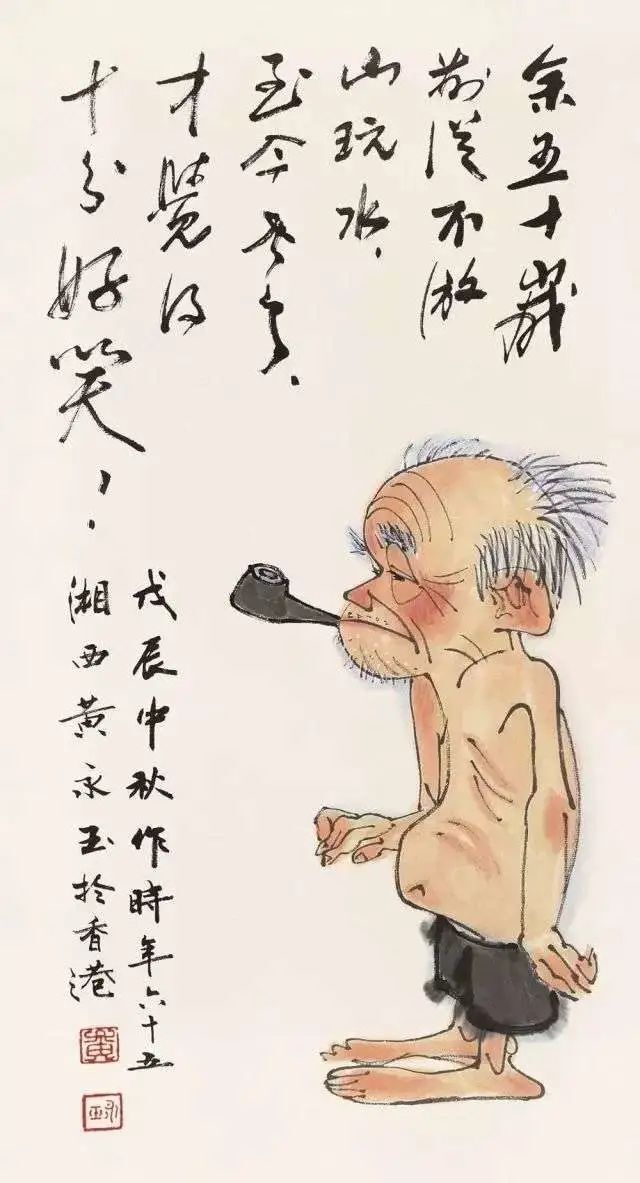 余五十歲
前從不游
山玩水，
至今老了，
才覺得
十分好笑！
戊辰中秋作時年六十五
湘西黄永玉於香港
黄
永玉